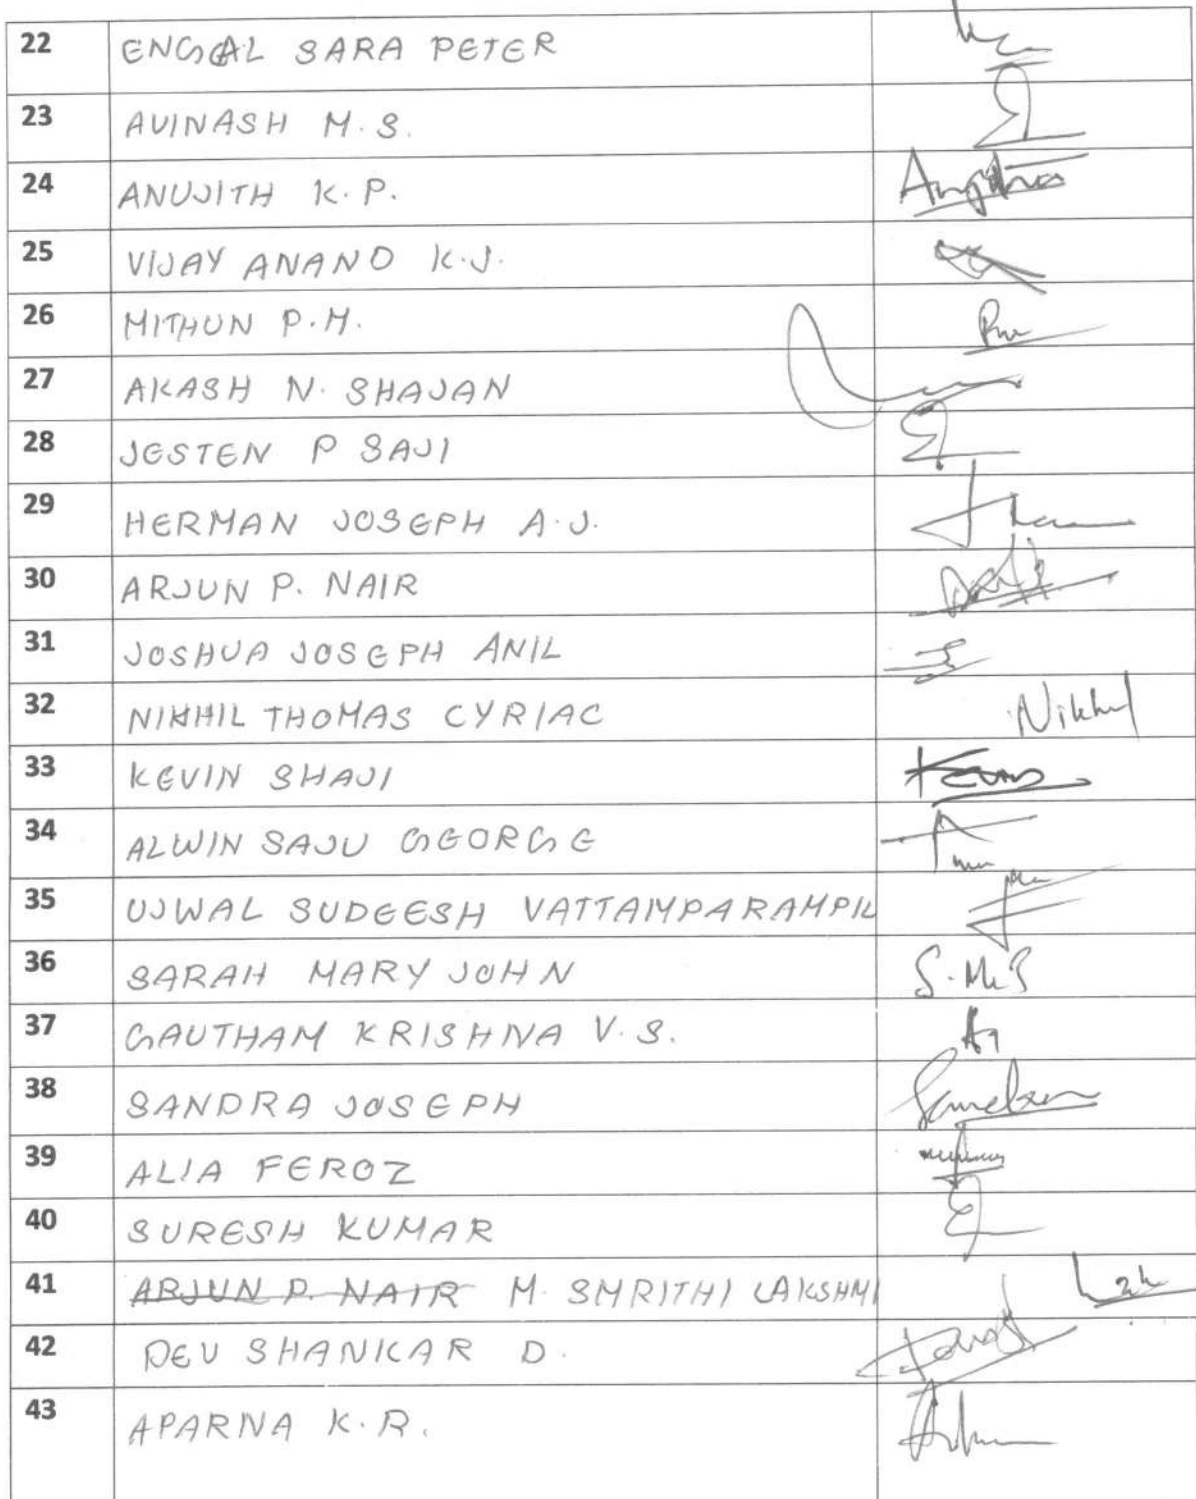 22 ENGAL SARA PETER
23 AVINASH M.S.
24 ANUJITH K.P.
25 VIJAY ANAND K.J.
26 MITHUN P.M.
27 AKASH N. SHAJAN
28 JESTEN P SAJI
29 HERMAN JOSEPH A.J.
30 ARJUN P. NAIR
31 JOSHUA JOSEPH ANIL
32 NIKHIL THOMAS CYRIAC Nikhil
33 KEVIN SHAJI
34 ALWIN SAJU GEORGE
35 UJWAL SUDEESH VATTAMPARAMPIL
36 SARAH MARY JOHN
37 GAUTHAM KRISHNA V.S.
38 SANDRA JOSEPH
39 ALIA FEROZ
40 SURESH KUMAR
41 ARJUN P. NAIR M. SMRITHI LAKSHMI
42 DEV SHANKAR D.
43 APARNA K.R.